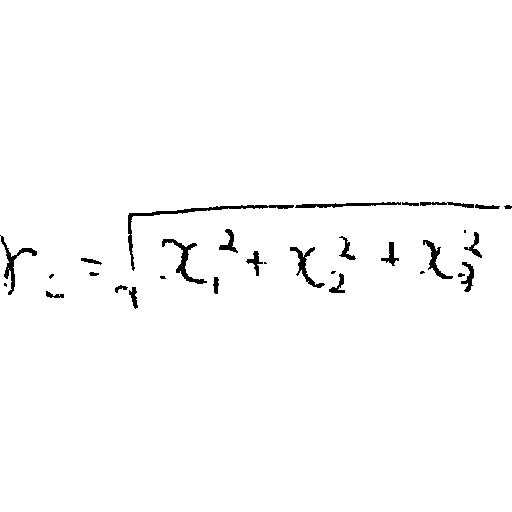 r = √(x₁² + x₂² + x₃²)